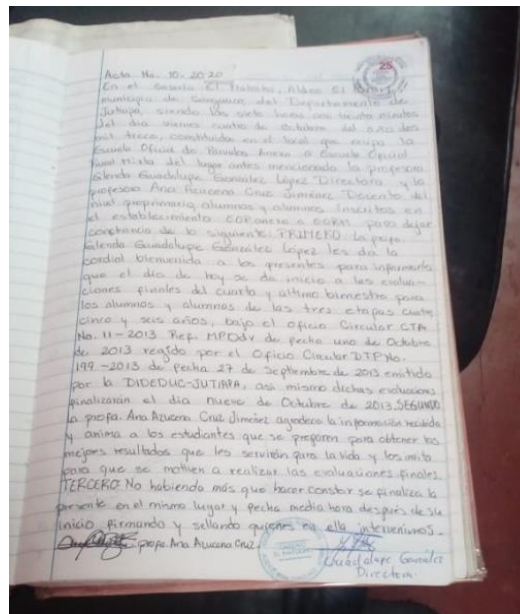 25
Acta No. 10-2020
En el Caserío El Trabaho, Aldea El
municipio de Sanyuyo, del Departamento de
Jutiapa, siendo las siete horas con treinta minutos
del día viernes cuatro de octubre del año dos
mil trece, constituidos en el local que ocupa la
Escuela Oficial de Párvulos Anexa a Escuela Oficial
Rural Mixta del lugar antes mencionado la profesora
Glenda Guadalupe González López Directora y la
profesora Ana Azucena Cruz Jiménez Docente del
nivel preprimaria, alumnos y alumnas inscritos en
el establecimiento EOP anexa a EORM para dejar
constancia de lo siguiente: PRIMERO La profa.
Glenda Guadalupe González López les da la
cordial bienvenida a los presentes para informarles
que el día de hoy se da inicio a las evalua-
ciones finales del cuarto y último bimestre para
los alumnos y alumnas de las tres etapas cuatro
cinco y seis años, bajo el oficio Circular CTA
No. 11-2013 Ref. MPDdv de fecha uno de Octubre
de 2013 regido por el Oficio Circular DTP No.
199-2013 de fecha 27 de Septiembre de 2013 emitido
por la DIDEDUC-JUTIAPA, así mismo dichas evaluaciones
finalizarán el día nueve de Octubre de 2013. SEGUNDO
la profa. Ana Azucena Cruz Jiménez agradece la información recibida
y anima a los estudiantes que se preparen para obtener los
mejores resultados que les servirán para la vida y los invita
para que se motiven a realizar las evaluaciones finales.
TERCERO: No habiendo más que hacer constar se finaliza la
presente en el mismo lugar y fecha media hora después de su
inicio, firmando y sellando quienes en ella intervenimos.
profa. Ana Azucena Cruz.
Guadalupe González
Directora